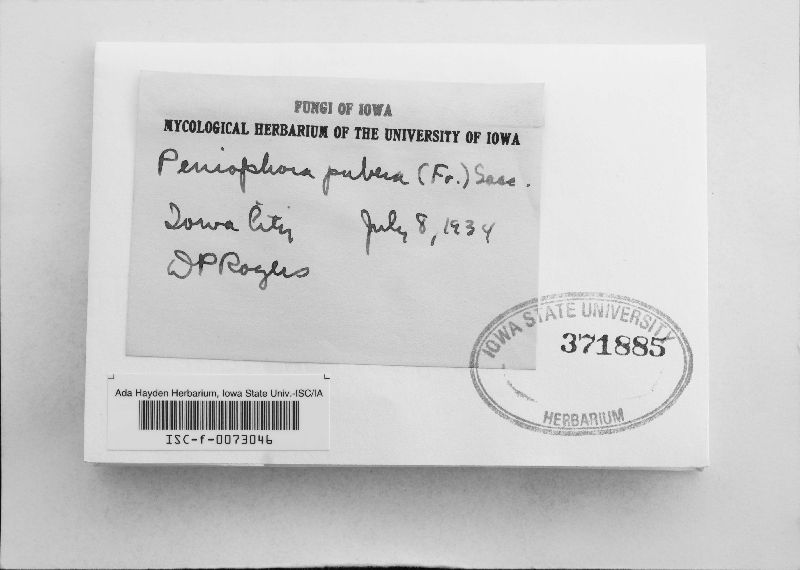 FUNGI OF IOWA
MYCOLOGICAL HERBARIUM OF THE UNIVERSITY OF IOWA
Peniophora pubera (Fr.) Sacc.
Iowa City July 8, 1934
D P Rogers
IOWA STATE UNIVERSITY
371885
HERBARIUM
Ada Hayden Herbarium, Iowa State Univ.-ISC/IA
ISC-f-0073046